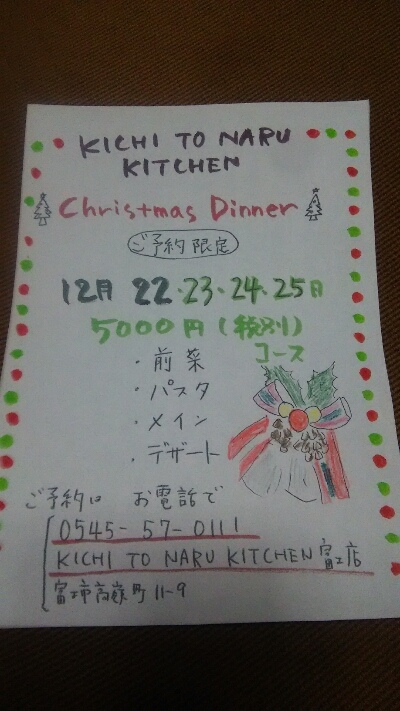 KICHI TO NARU
KITCHEN
Christmas Dinner
ご予約限定
12月 22・23・24・25日
5000円(税別)
コース
・前菜
・パスタ
・メイン
・デザート
ご予約は お電話で
0545-57-0111
KICHI TO NARU KITCHEN 富士店
富士市高嶺町11-9